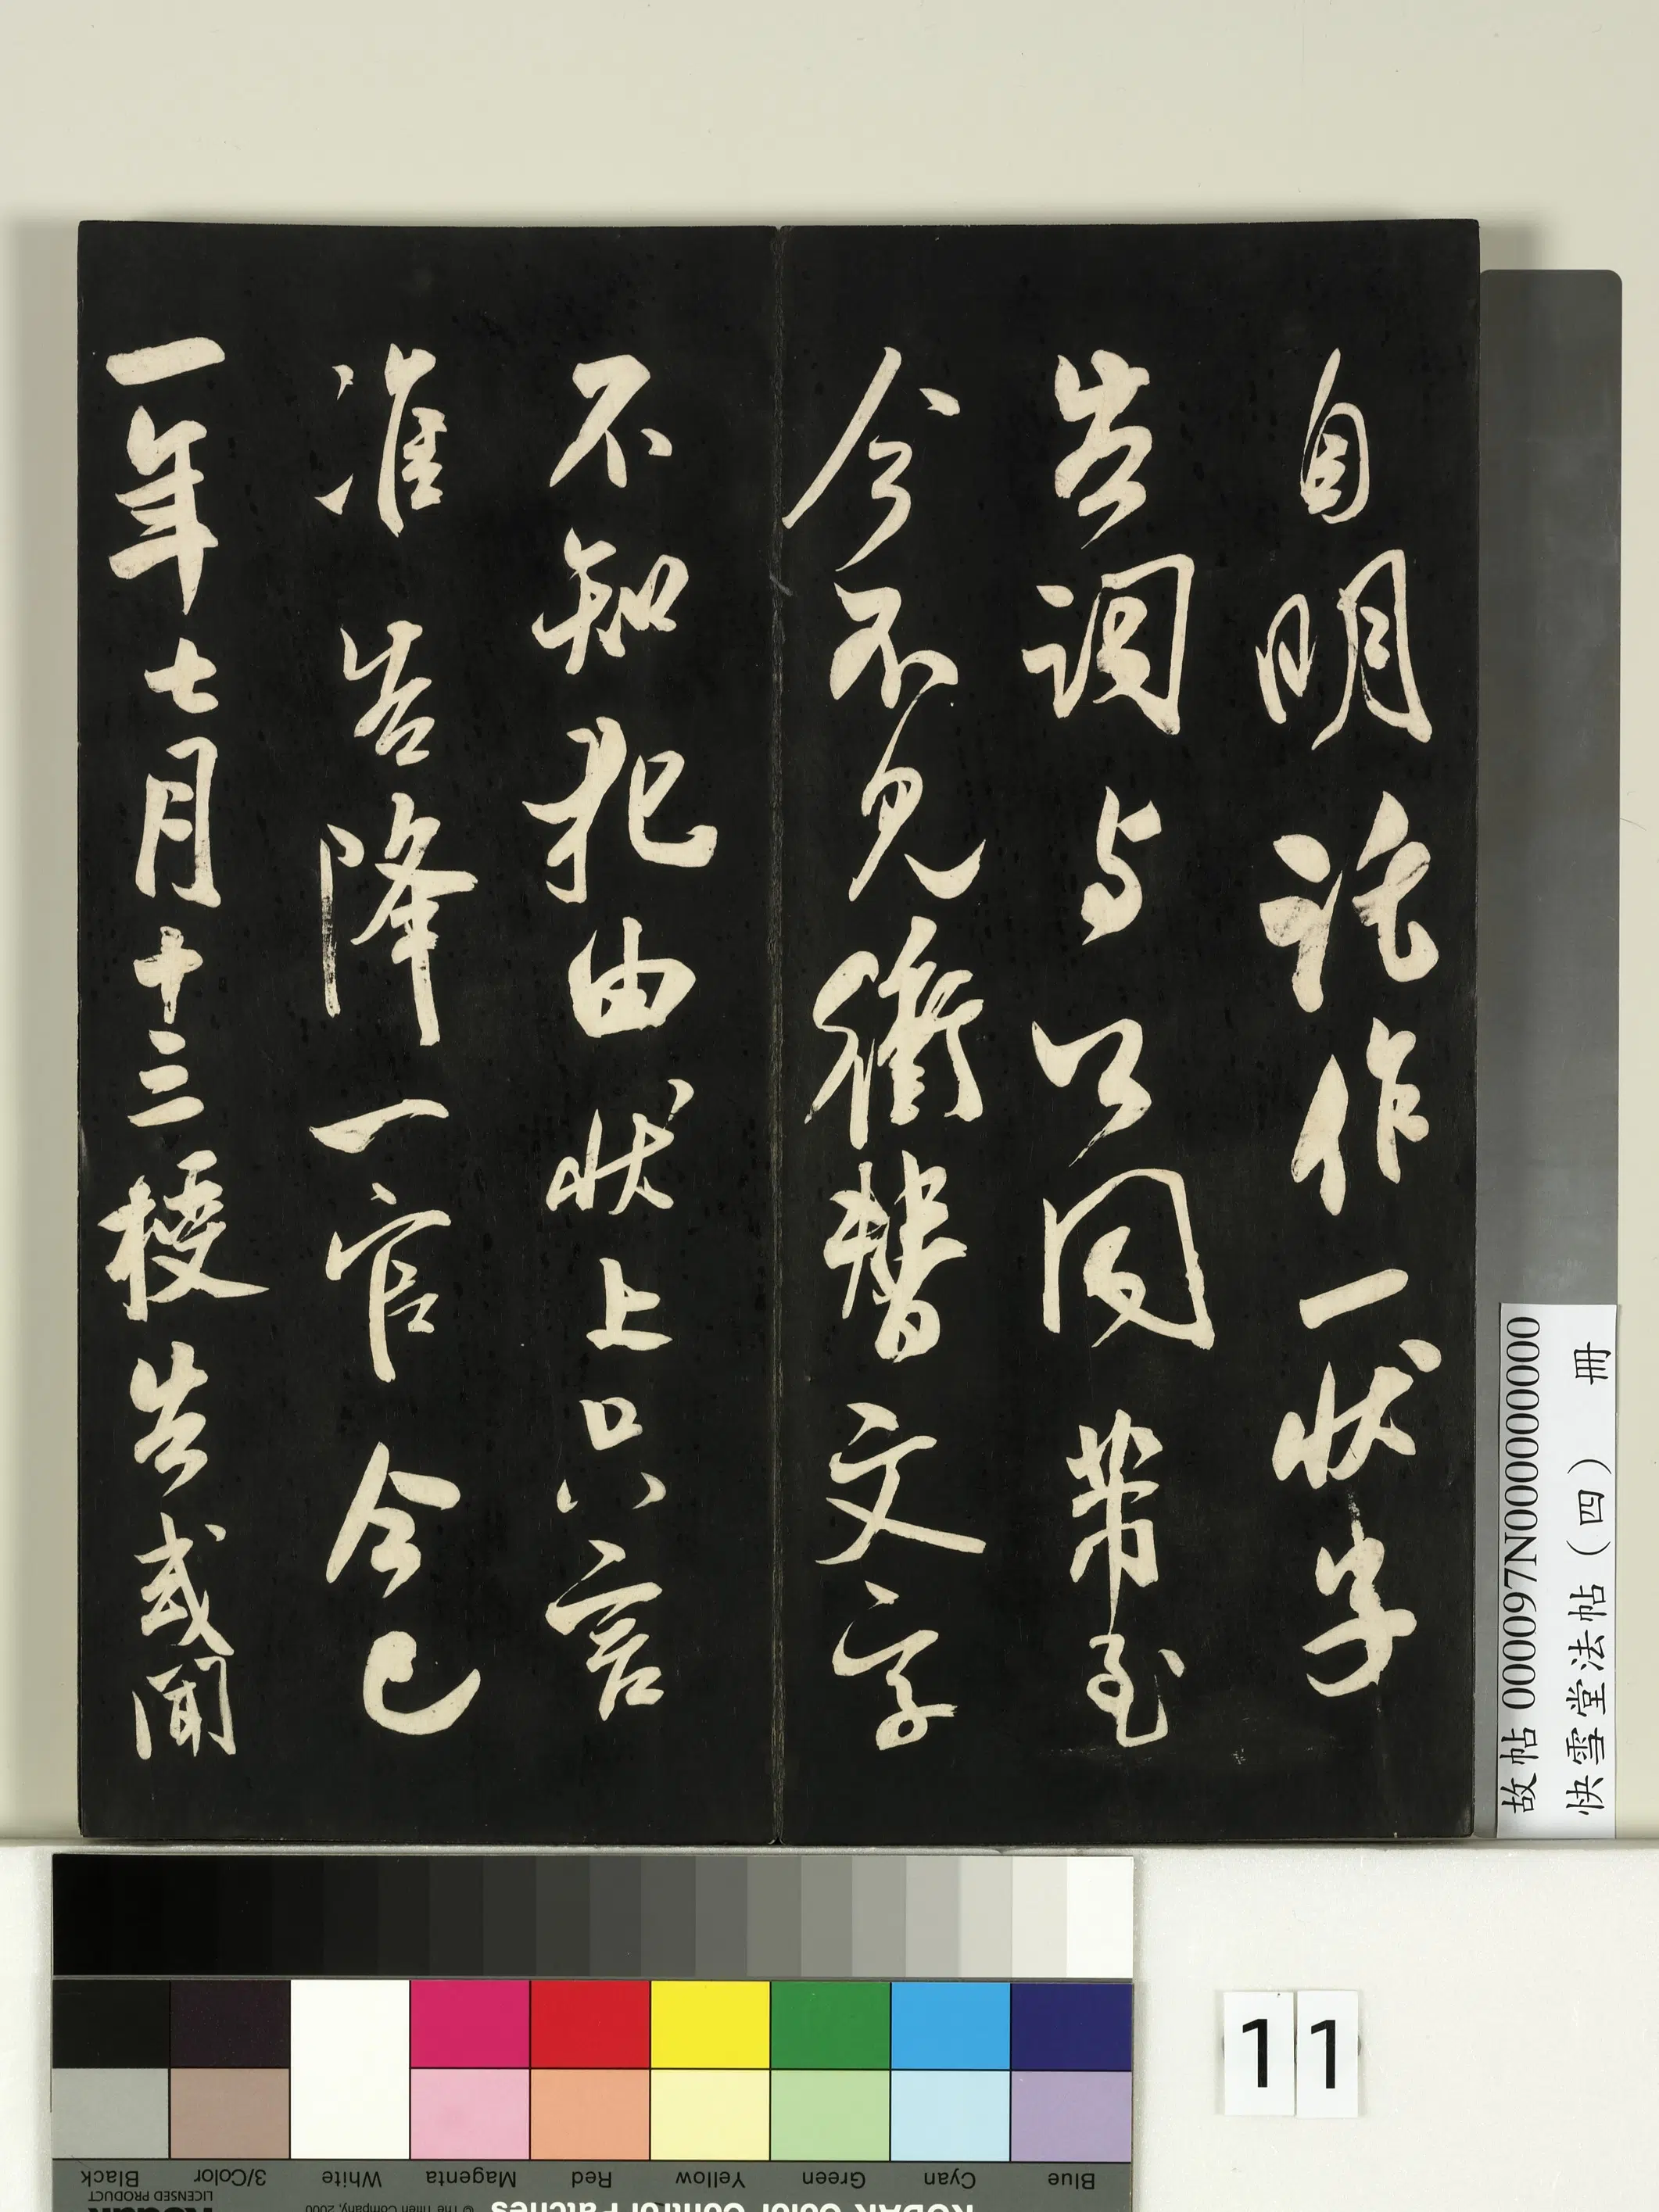 自明託作一状字
告詞与公同帶至
今不見衝替文字
不知犯由状上只言
准告降一官今已
一年七月十三授告或聞
故帖 000097N000000000
快雪堂法帖（四） 冊
11
KODAK Color Control Patches
© The Tiffen Company, 2000
Kodak
LICENSED PRODUCT
Blue Cyan Green Yellow Red Magenta White 3/Color Black